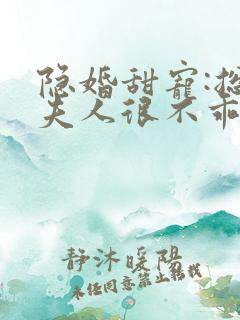 隐婚甜寵:总
夫人很不乖
静沐暖阳
未经同意禁止转载